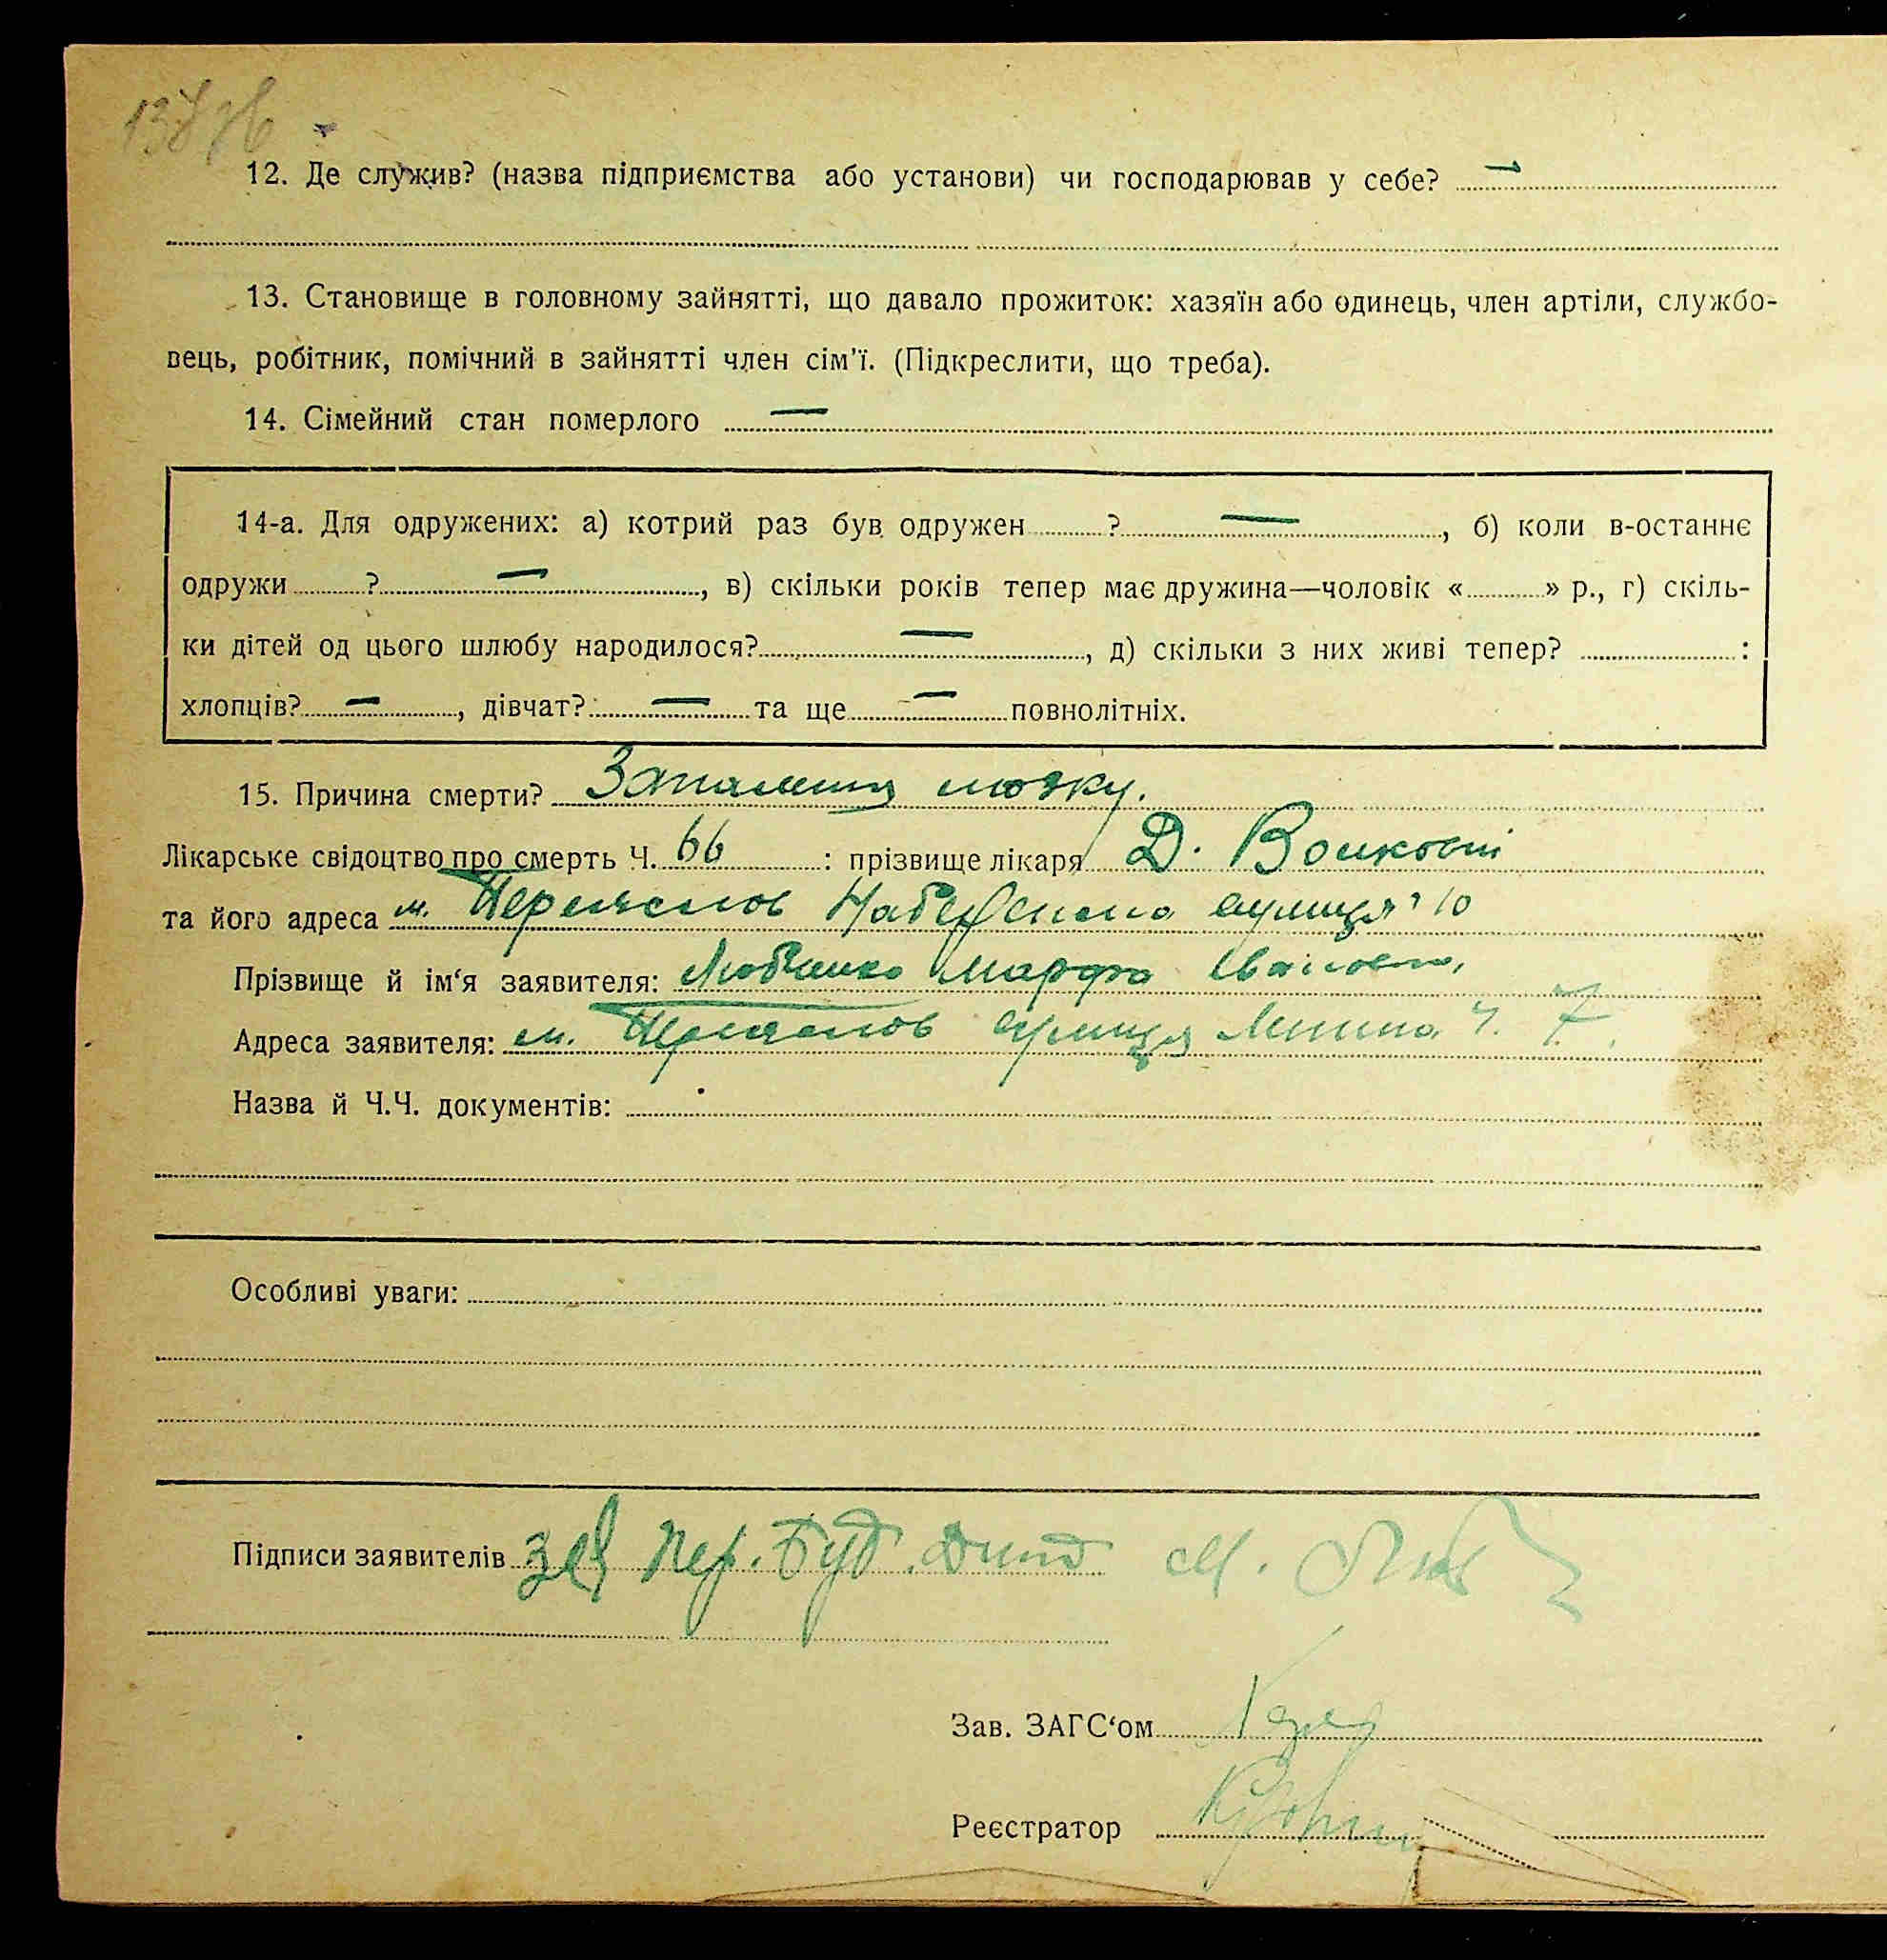 12. Де служив? (назва підприємства або установи) чи господарював у себе? —
13. Становище в головному зайнятті, що давало прожиток: хазяїн або одинець, член артіли, службо-
вець, робітник, помічний в зайнятті член сім'ї. (Підкреслити, що треба).
14. Сімейний стан померлого —
14-а. Для одружених: а) котрий раз був одружен ? —, б) коли в-останнє
одружи ? —, в) скільки років тепер має дружина—чоловік « » р., г) скіль-
ки дітей од цього шлюбу народилося? —, д) скільки з них живі тепер? :
хлопців? —, дівчат? — та ще — повнолітніх.
15. Причина смерти? Запалення мозку.
Лікарське свідоцтво про смерть Ч. 66 : прізвище лікаря Д.
та його адреса м. Переяслов вулиця 10
Прізвище й ім'я заявителя: Марфа Івановна,
Адреса заявителя: м. Переяслов вулиця Леніна Ч. 7.
Назва й Ч.Ч. документів:
Особливі уваги:
Підписи заявителів Зав Пер. Буд. Дит М.
Зав. ЗАГС'ом
Реєстратор